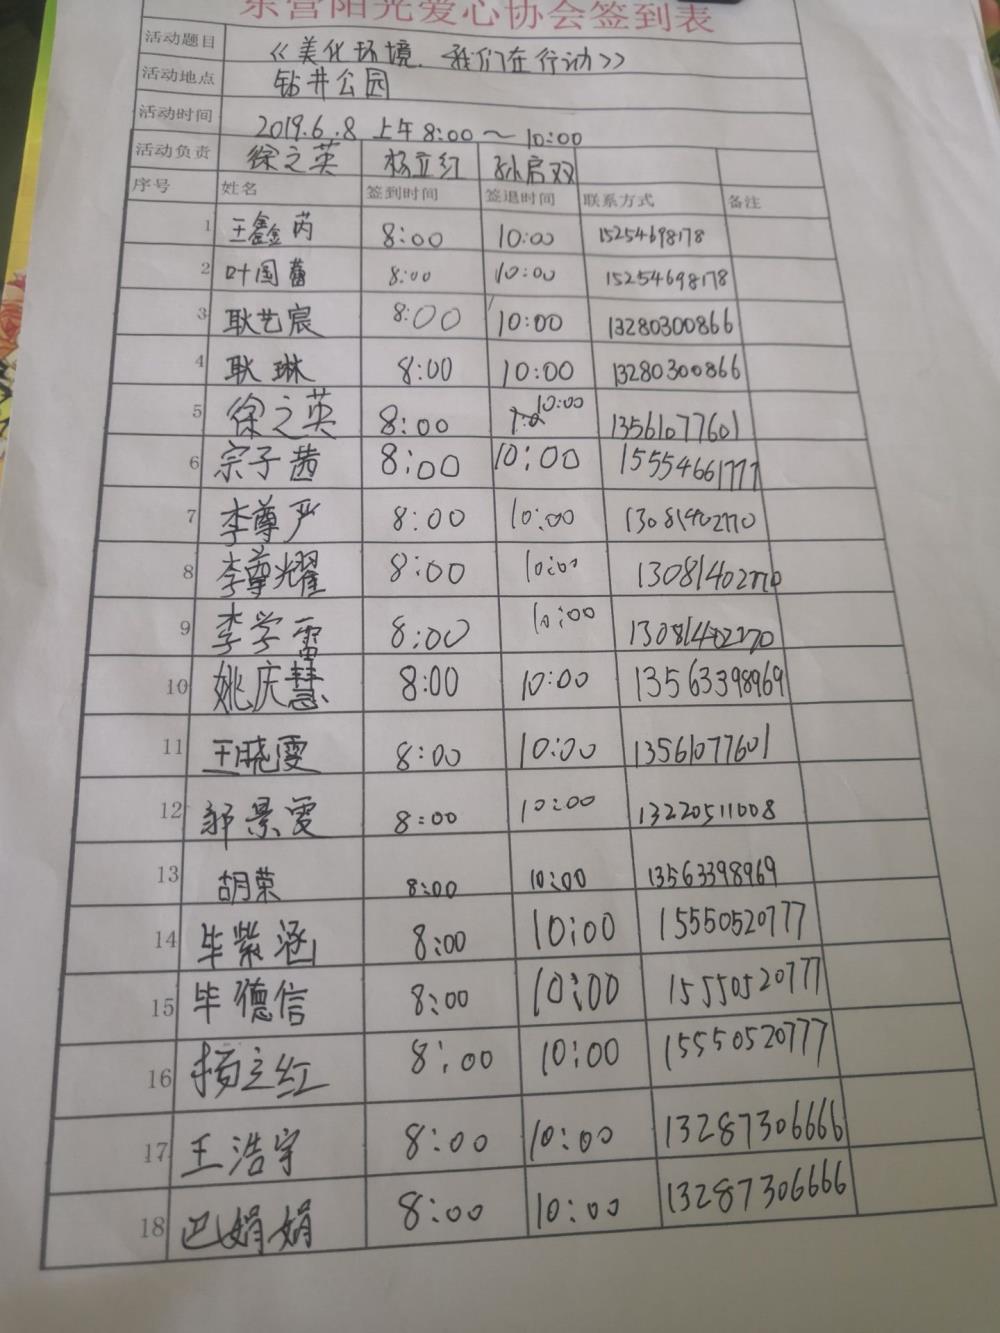 东营阳光爱心协会签到表
活动题目 《美化环境、我们在行动》
活动地点 钻井公园
活动时间 2019.6.8 上午8:00～10:00
活动负责 徐之英 杨立红 孙启双
序号 姓名 签到时间 签退时间 联系方式 备注
1 王鑫芮 8:00 10:00 15254698178
2 叶国蕾 8:00 10:00 15254698178
3 耿艺宸 8:00 10:00 13280300866
4 耿琳 8:00 10:00 13280300866
5 徐之英 8:00 10:00 13561077601
6 宗子茜 8:00 10:00 15554661777
7 李尊严 8:00 10:00 13081402770
8 李尊耀 8:00 10:00 13081402770
9 李学雷 8:00 10:00 13081402770
10 姚庆慧 8:00 10:00 13563398969
11 王晓雯 8:00 10:00 13561077601
12 郭景雯 8:00 10:00 13220511008
13 胡荣 8:00 10:00 13563398969
14 毕紫涵 8:00 10:00 15550520777
15 毕德信 8:00 10:00 15550520777
16 杨立红 8:00 10:00 15550520777
17 王浩宇 8:00 10:00 13287306666
18 巴娟娟 8:00 10:00 13287306666